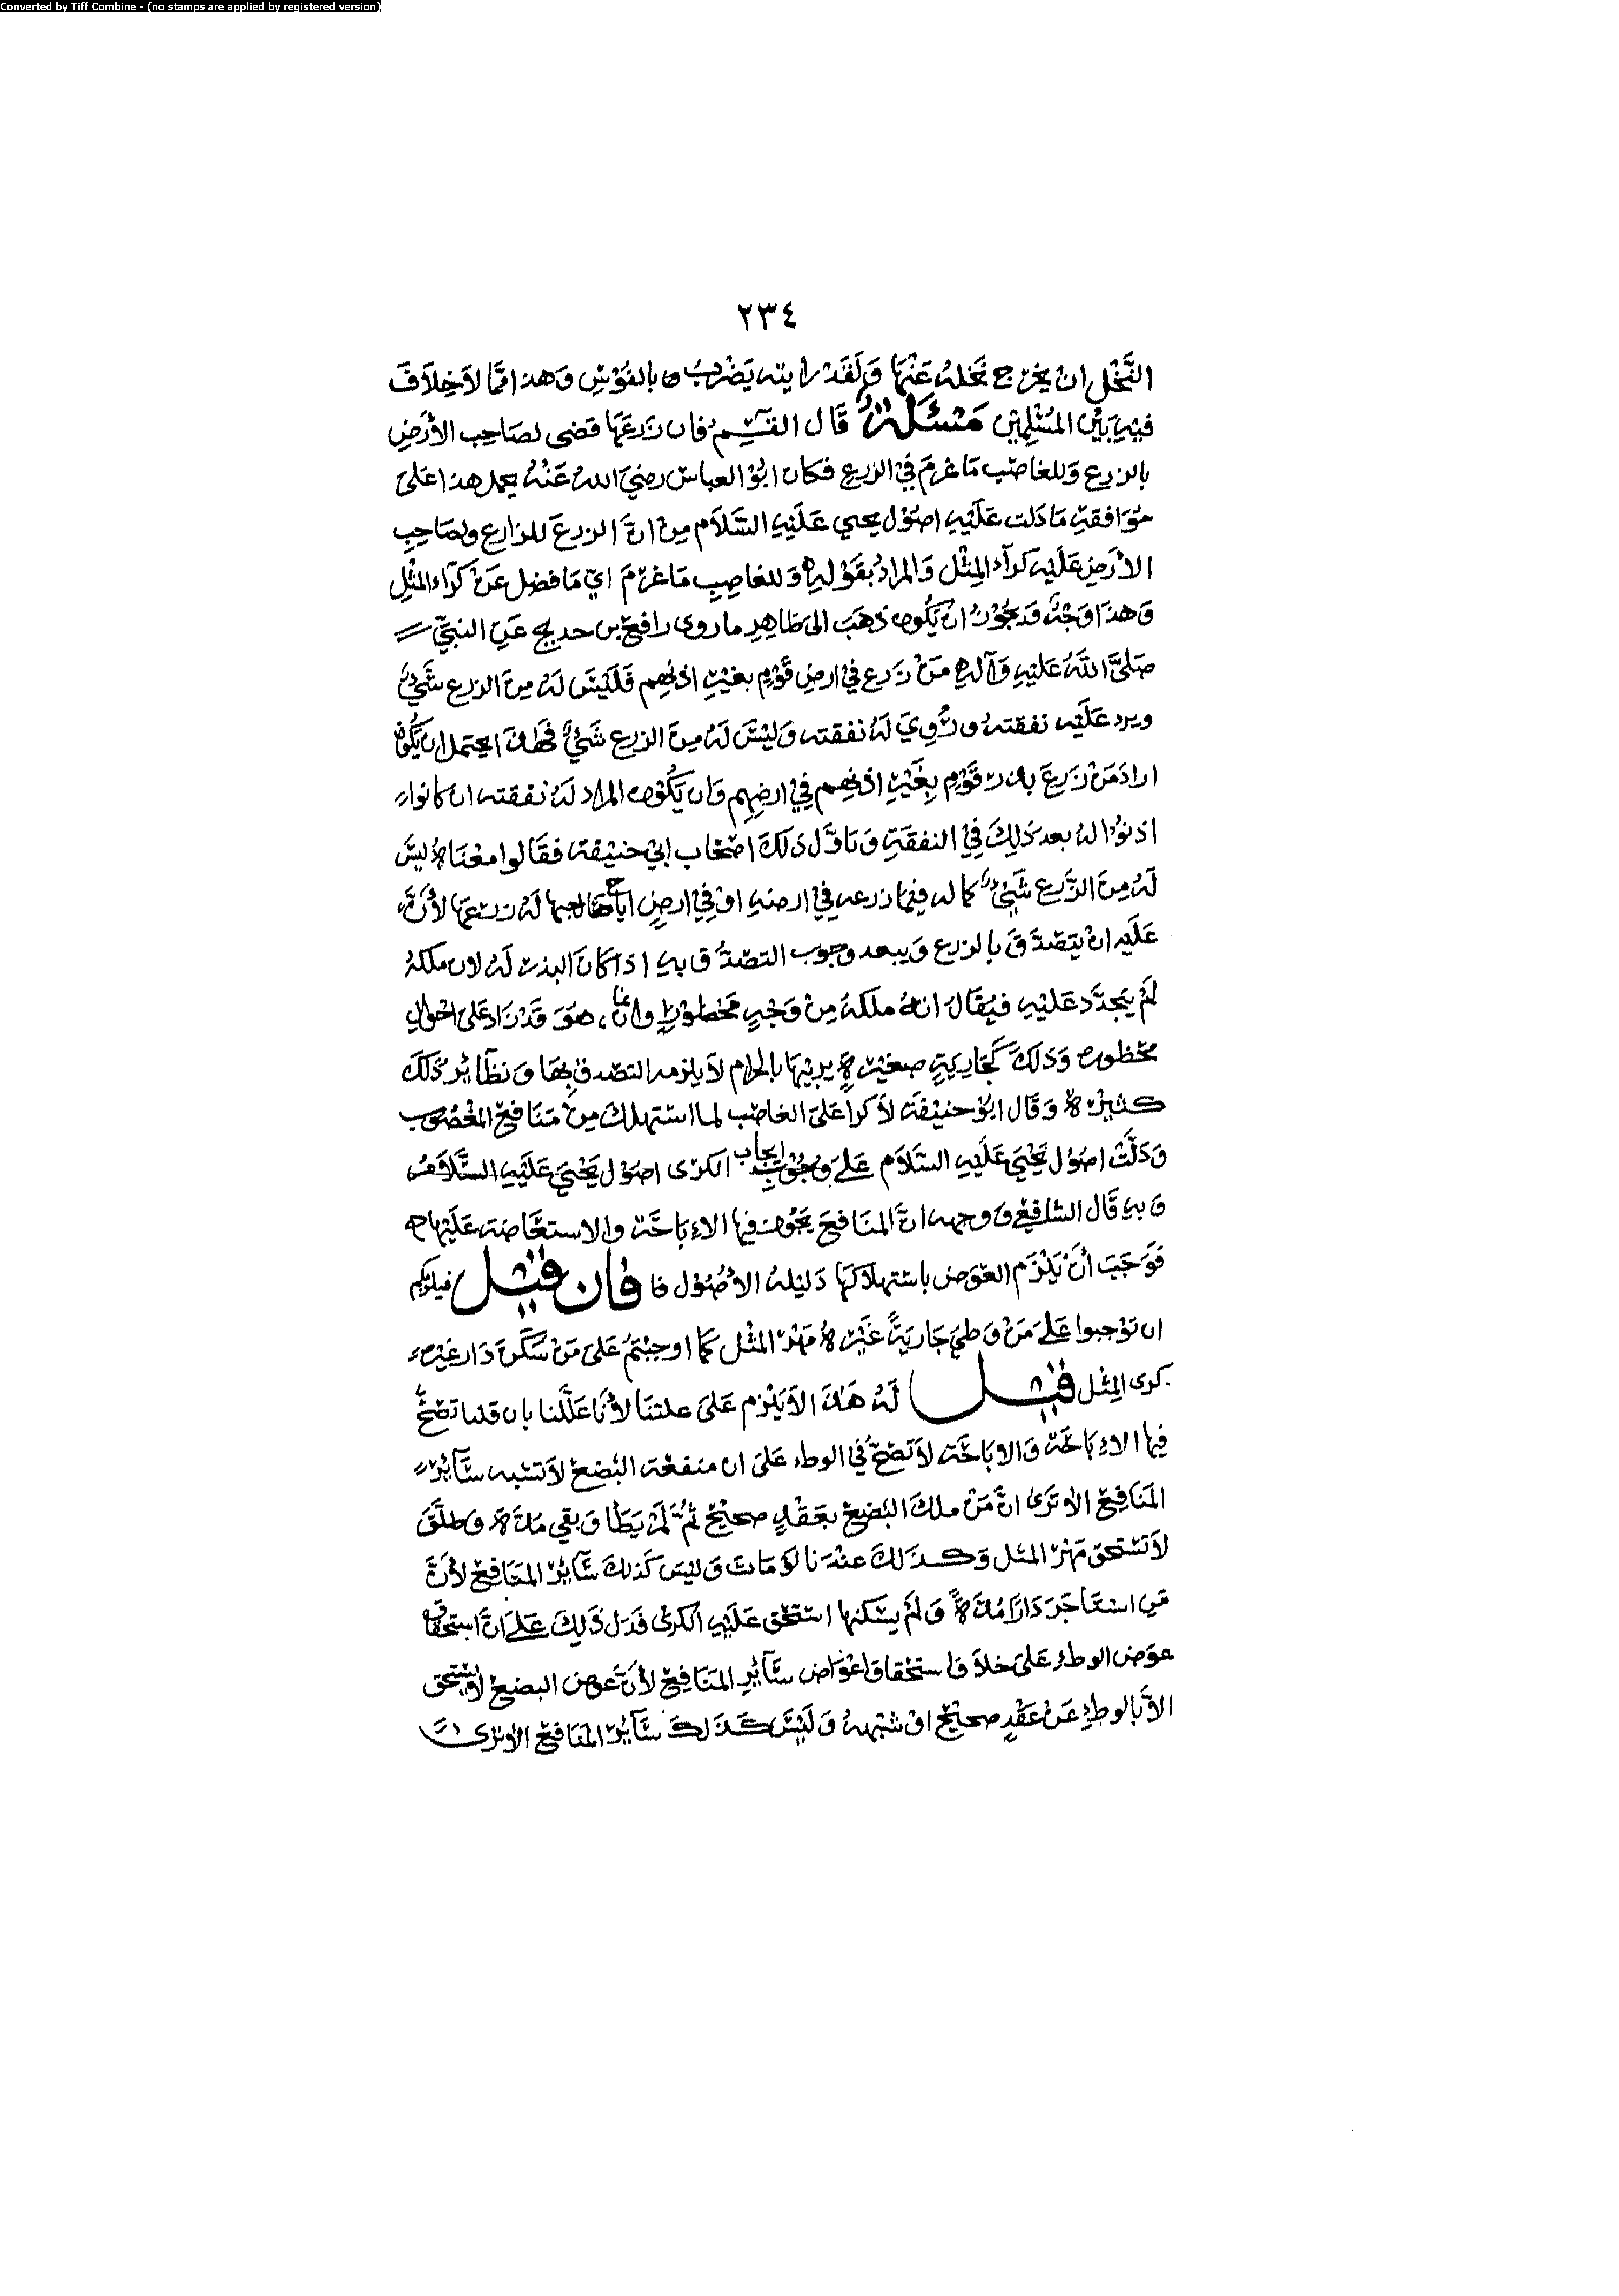 Converted by Tiff Combine - (no stamps are applied by registered version)
٢٣٤
النَّخْل ان يخرج نخله عَنْهَا وَلَقَدْ رايته يَضْرب بالفؤس وَهذا مِمَّا لاَ خِلاَفَ
فيهِ بَيْن المُسْلِمِيْن مَسْئَلَة قَال القسِم فان زَرعَهَا قضى لصَاحِب الأَرْضِ
بالزرع وَللغاصب مَا غرمَ في الزرع فكان ابُوْ العباس رضِيَ اللهُ عَنْهُ يحمل هذا عَلى
مُوَافقةِ مَا دَلت عَلَيْهِ اصُوْل يحيى عَلَيْهِ السَّلاَم مِنْ انَّ الزرعَ للزارع ولصَاحِبِ
الأرَضِ عَلَيْه كرآء المِثْل وَالمرادُ بقَوْلهِ وَللغاصِبِ مَا غرْمَ اي مَا فضل عَنْ كرَآء المثْلِ
وَهذَا وَجْهٌ وَقد يجُوْزُ انْ يَكُون ذهَبَ الى ظَاهِرِ ما روى رافع بن خديج عَنِ النبيّ
صَلىَّ اللهُ عَليْهِ وَآلهِ مَنْ زَرع في ارض قَوْمٍ بغيْرِ اذنهِم فَلَيْسَ لَهُ مِنَ الزرع شَيْءٌ
ويرد عَلَيْه نفقتهُ وَرُوِيَ لَهُ نفقته وَليْسَ لَهُ منَ الزرع شَيْءٌ فَهَذَا يحتمل ان يَكُوْن
اراد مَنْ زَرعَ بذر قَوْم بِغَيْرِ اذنهِم فِيْ ارضِهِم وَان يَكُون المراد لَهُ نفقته ان كانوا
اذنوُا لهُ بعد ذلِكَ في النفقةِ وَتاوَّل ذلكَ اصْحَاب ابيْ حنيْفَة فقَالوا معْنَاهُ ليْسَ
لَهُ مِنَ الزَّرع شَيْءٌ كما له فيْمَا زرعه فيْ ارضهِ اوْ فيْ ارضِ اباح صَاحبها لَهُ زرعهَا لأَنَّ
عَلَيْه انْ يتصَدَّقَ بالزرع وَيبعد وجوب التصَدُّق بهِ اذا كانَ البذر لَهُ لان ملكَهُ
لَمْ يتجَدَّد عَليْهِ فيُقالَ انهُ ملكهُ مِنْ وَجْهٍ مَحْظوْرٍ وانما هوَ قدْ زادَ عَلى احْوالٍ
محظوره وَذلكَ كجَاريَةٍ صغيْرةٍ يربيْهَا بالحرام لاَ يلزمه التصدق بهَا وَنظَآئِرُ ذلكَ
كثيْرة وَقال ابُوْ حنيْفَة لاَ كراَ عَلىَ الغاصب لما استهلك مِنْ مَنَافع المغْصُوب
وَدَلَّتْ اصُوْل يَحْيَى عَلَيْهِ السَّلاَم عَلىَ وجُوْب ايجاب الكرى اصوْل يَحْيَى عَليْهِ السَّلاَمُ
وَبهِ قَال الشافعِي وَوجهه انَّ المنَافِعَ يجُوْز فيها الاِبَاحَة والاستعَاضة عَلَيْهَا
فَوَجَبَ أَنْ يَلْزَم العوَض باسْتهْلاَكهَا دَليْلهُ الأصُوْل فا فان قيْل فيلزمكم
ان توْجبوا عَلىَ مَنْ وَطيَ جَاريَةً غَيْرهُ مهْرَ المثْل كما اوجبْتمُ عَلىَ مَنْ سَكَنَ دَار غيْره
كرى المِثْل قيْل لَهُ هَذا لاَ يَلْزم عَلىَ علتنَا لأَنا عَلَّلنا بان قلنا تصحُّ
فيها الاِبَاحَة وَالاباحَة لاَ تصَحّ في الوطء عَلىَ ان منفعَة البُضع لاَ تشبه سَآئِر
المنَافِع الاَ تَرَى انَّ مَنْ ملكَ البُضعَ بعَقْدٍ صحيْحٍ ثمُّ لَمْ يَطَا وَبقي مدَة وَطلَّقَ
لاَ تسْتحق مَهْرَ المثل وَكذَلكَ عنْدنا لوْ مَاتَ وَليْسَ كَذلكَ سَآئِرُ المنَافِع لأَنَّ
مَن استَاجَرَ دَارًا مُدَةً وَلَمْ يسْكنها استحَق عَليْهِ الكرى فَدَل ذَلِكَ عَلىَ انَّ استحقاق
عوَض الوطء عَلىَ خلاَف استحقَاق اعْوَاض سَآئِرِ المنَافِع لأَنَّ عوض البضع لاَ يستحق
الاَّ بالوطءِ عَنْ عَقْدٍ صحيْحٍ اوْ شبْهةُ وَليْسَ كذَلكَ سَآئِرُ المنَافِع الاَ ترى انَّ